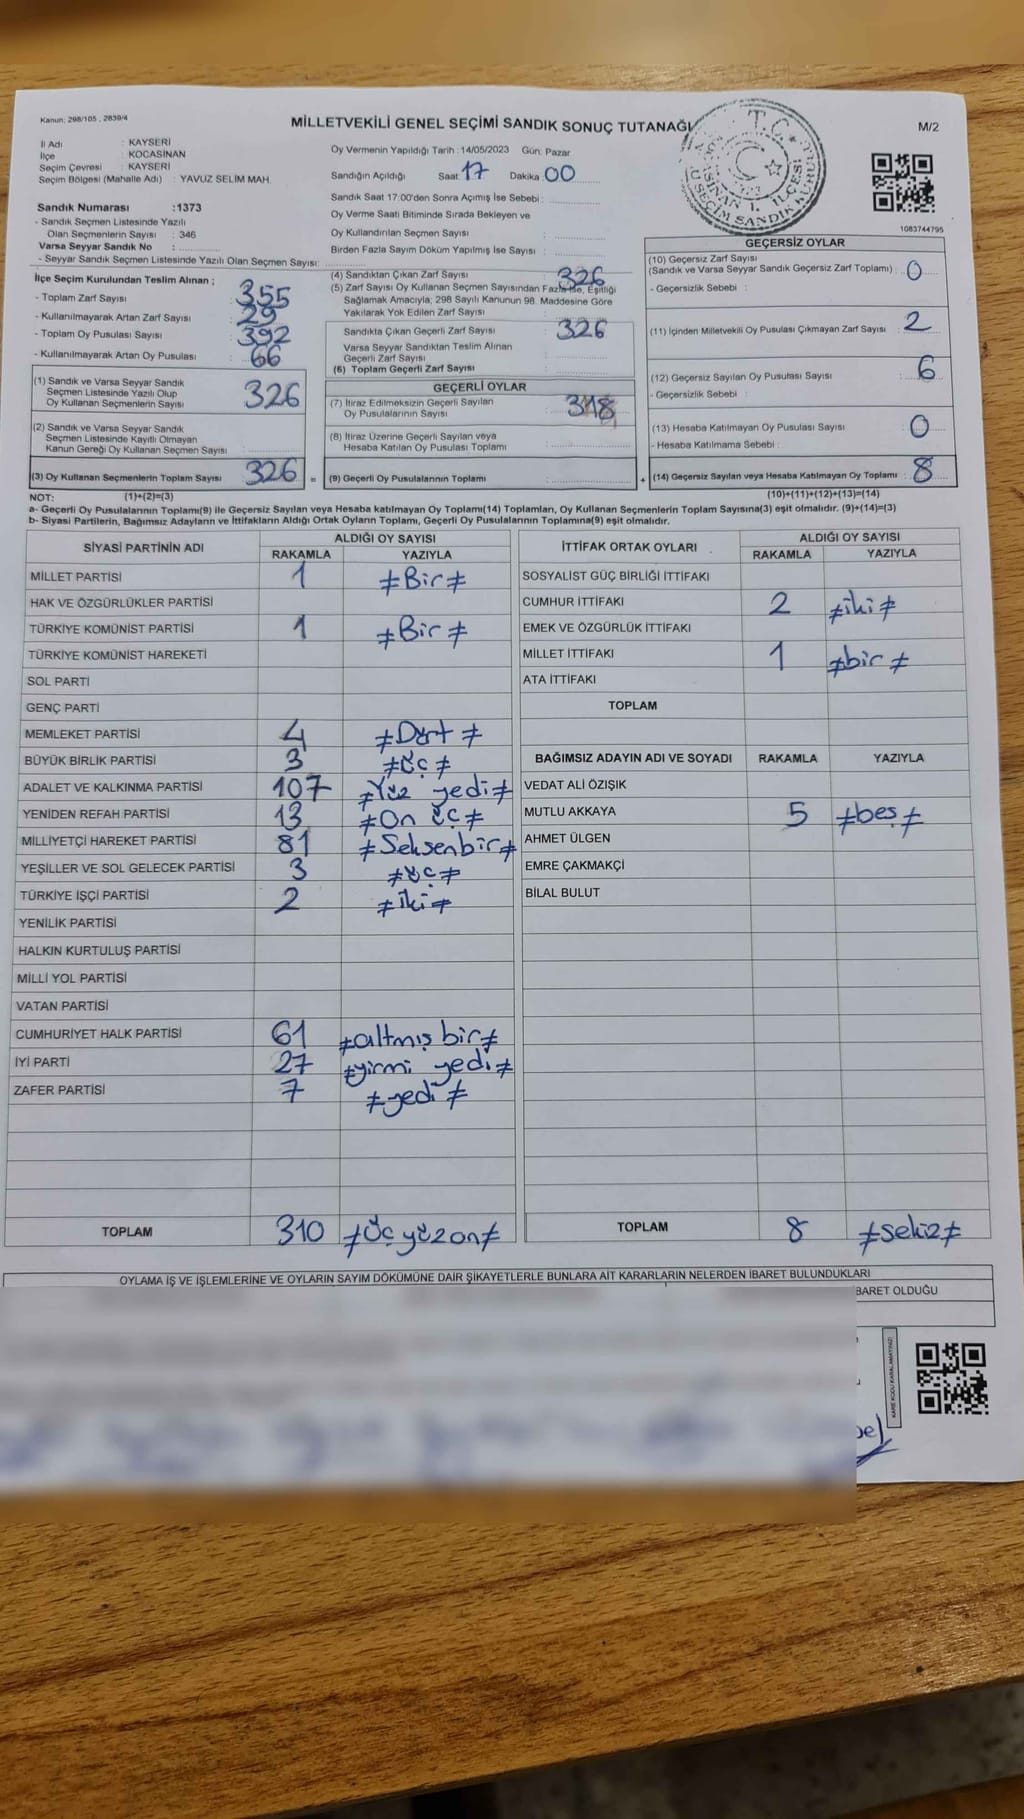 Kanun; 298/105 , 2839/4
MİLLETVEKİLİ GENEL SEÇİMİ SANDIK SONUÇ TUTANAĞI
M/2
İl Adı : KAYSERİ
İlçe : KOCASİNAN
Seçim Çevresi : KAYSERİ
Seçim Bölgesi (Mahalle Adı) : YAVUZ SELİM MAH.
Oy Vermenin Yapıldığı Tarih : 14/05/2023 Gün: Pazar
Sandığın Açıldığı Saat: 17 Dakika: 00
Sandık Saat 17:00'den Sonra Açımış İse Sebebi :
Oy Verme Saati Bitiminde Sırada Bekleyen ve
Oy Kullandırılan Seçmen Sayısı :
Birden Fazla Sayım Döküm Yapılmış İse Sayısı :
T.C.
1083744795
Sandık Numarası :1373
- Sandık Seçmen Listesinde Yazılı
Olan Seçmenlerin Sayısı : 346
Varsa Seyyar Sandık No :
- Seyyar Sandık Seçmen Listesinde Yazılı Olan Seçmen Sayısı:
İlçe Seçim Kurulundan Teslim Alınan ;
- Toplam Zarf Sayısı : 355
- Kullanılmayarak Artan Zarf Sayısı : 29
- Toplam Oy Pusulası Sayısı : 392
- Kullanılmayarak Artan Oy Pusulası : 66
(1) Sandık ve Varsa Seyyar Sandık
Seçmen Listesinde Yazılı Olup
Oy Kullanan Seçmenlerin Sayısı : 326
(2) Sandık ve Varsa Seyyar Sandık
Seçmen Listesinde Kayıtlı Olmayan
Kanun Gereği Oy Kullanan Seçmen Sayısı :
(3) Oy Kullanan Seçmenlerin Toplam Sayısı : 326
(4) Sandıktan Çıkan Zarf Sayısı : 326
(5) Zarf Sayısı Oy Kullanan Seçmen Sayısından Fazla İse, Eşitliği
Sağlamak Amacıyla; 298 Sayılı Kanunun 98. Maddesine Göre
Yakılarak Yok Edilen Zarf Sayısı :
Sandıkta Çıkan Geçerli Zarf Sayısı : 326
Varsa Seyyar Sandıktan Teslim Alınan
Geçerli Zarf Sayısı :
(6) Toplam Geçerli Zarf Sayısı :
GEÇERLİ OYLAR
(7) İtiraz Edilmeksizin Geçerli Sayılan
Oy Pusulalarının Sayısı : 318
(8) İtiraz Üzerine Geçerli Sayılan veya
Hesaba Katılan Oy Pusulası Toplamı :
= (9) Geçerli Oy Pusulalarının Toplamı :
GEÇERSİZ OYLAR
(10) Geçersiz Zarf Sayısı
(Sandık ve Varsa Seyyar Sandık Geçersiz Zarf Toplamı) : 0
- Geçersizlik Sebebi :
(11) İçinden Milletvekili Oy Pusulası Çıkmayan Zarf Sayısı : 2
(12) Geçersiz Sayılan Oy Pusulası Sayısı : 6
- Geçersizlik Sebebi :
(13) Hesaba Katılmayan Oy Pusulası Sayısı : 0
- Hesaba Katılmama Sebebi :
+ (14) Geçersiz Sayılan veya Hesaba Katılmayan Oy Toplamı : 8
NOT: (1)+(2)=(3) (10)+(11)+(12)+(13)=(14)
a- Geçerli Oy Pusulalarının Toplamı(9) ile Geçersiz Sayılan veya Hesaba katılmayan Oy Toplamı(14) Toplamları, Oy Kullanan Seçmenlerin Toplam Sayısına(3) eşit olmalıdır. (9)+(14)=(3)
b- Siyasi Partilerin, Bağımsız Adayların ve İttifakların Aldığı Ortak Oyların Toplamı, Geçerli Oy Pusulalarının Toplamına(9) eşit olmalıdır.
SİYASİ PARTİNİN ADI ALDIĞI OY SAYISI
RAKAMLA YAZIYLA
MİLLET PARTİSİ 1 ≠Bir≠
HAK VE ÖZGÜRLÜKLER PARTİSİ
TÜRKİYE KOMÜNİST PARTİSİ 1 ≠Bir≠
TÜRKİYE KOMÜNİST HAREKETİ
SOL PARTİ
GENÇ PARTİ
MEMLEKET PARTİSİ 4 ≠Dört≠
BÜYÜK BİRLİK PARTİSİ 3 ≠üç≠
ADALET VE KALKINMA PARTİSİ 107 ≠Yüz yedi≠
YENİDEN REFAH PARTİSİ 13 ≠On üç≠
MİLLİYETÇİ HAREKET PARTİSİ 81 ≠Seksenbir≠
YEŞİLLER VE SOL GELECEK PARTİSİ 3 ≠üç≠
TÜRKİYE İŞÇİ PARTİSİ 2 ≠iki≠
YENİLİK PARTİSİ
HALKIN KURTULUŞ PARTİSİ
MİLLİ YOL PARTİSİ
VATAN PARTİSİ
CUMHURİYET HALK PARTİSİ 61 ≠altmış bir≠
İYİ PARTİ 27 ≠yirmi yedi≠
ZAFER PARTİSİ 7 ≠yedi≠
TOPLAM 310 ≠Üç yüz on≠
İTTİFAK ORTAK OYLARI ALDIĞI OY SAYISI
RAKAMLA YAZIYLA
SOSYALİST GÜÇ BİRLİĞİ İTTİFAKI
CUMHUR İTTİFAKI 2 ≠iki≠
EMEK VE ÖZGÜRLÜK İTTİFAKI
MİLLET İTTİFAKI 1 ≠bir≠
ATA İTTİFAKI
TOPLAM
BAĞIMSIZ ADAYIN ADI VE SOYADI RAKAMLA YAZIYLA
VEDAT ALİ ÖZIŞIK
MUTLU AKKAYA 5 ≠beş≠
AHMET ÜLGEN
EMRE ÇAKMAKÇİ
BİLAL BULUT
TOPLAM 8 ≠sekiz≠
OYLAMA İŞ VE İŞLEMLERİNE VE OYLARIN SAYIM DÖKÜMÜNE DAİR ŞİKAYETLERLE BUNLARA AİT KARARLARIN NELERDEN İBARET BULUNDUKLARI
BARET OLDUĞU
KARE KODU KARALAMAYINIZ!